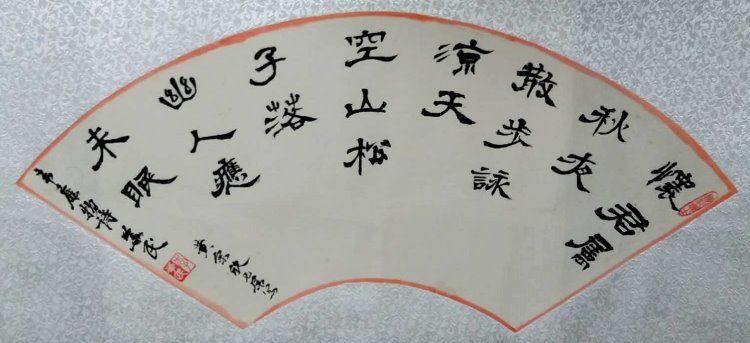 懷君屬
秋夜
散步詠
涼天
空山松
子落
幽人應
未眠
韋應物詩